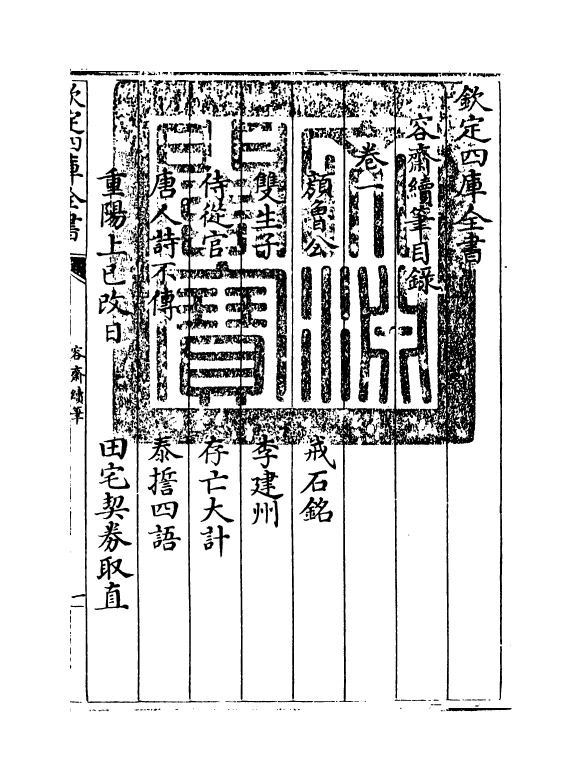 欽定四庫全書
容齋續筆目録
卷一
顔魯公　戒石銘
雙生子　李建州
侍從官　存亡大計
唐人詩不傳　泰誓四語
重陽上巳改日　田宅契券取直
欽定四庫全書　容齋續筆　一